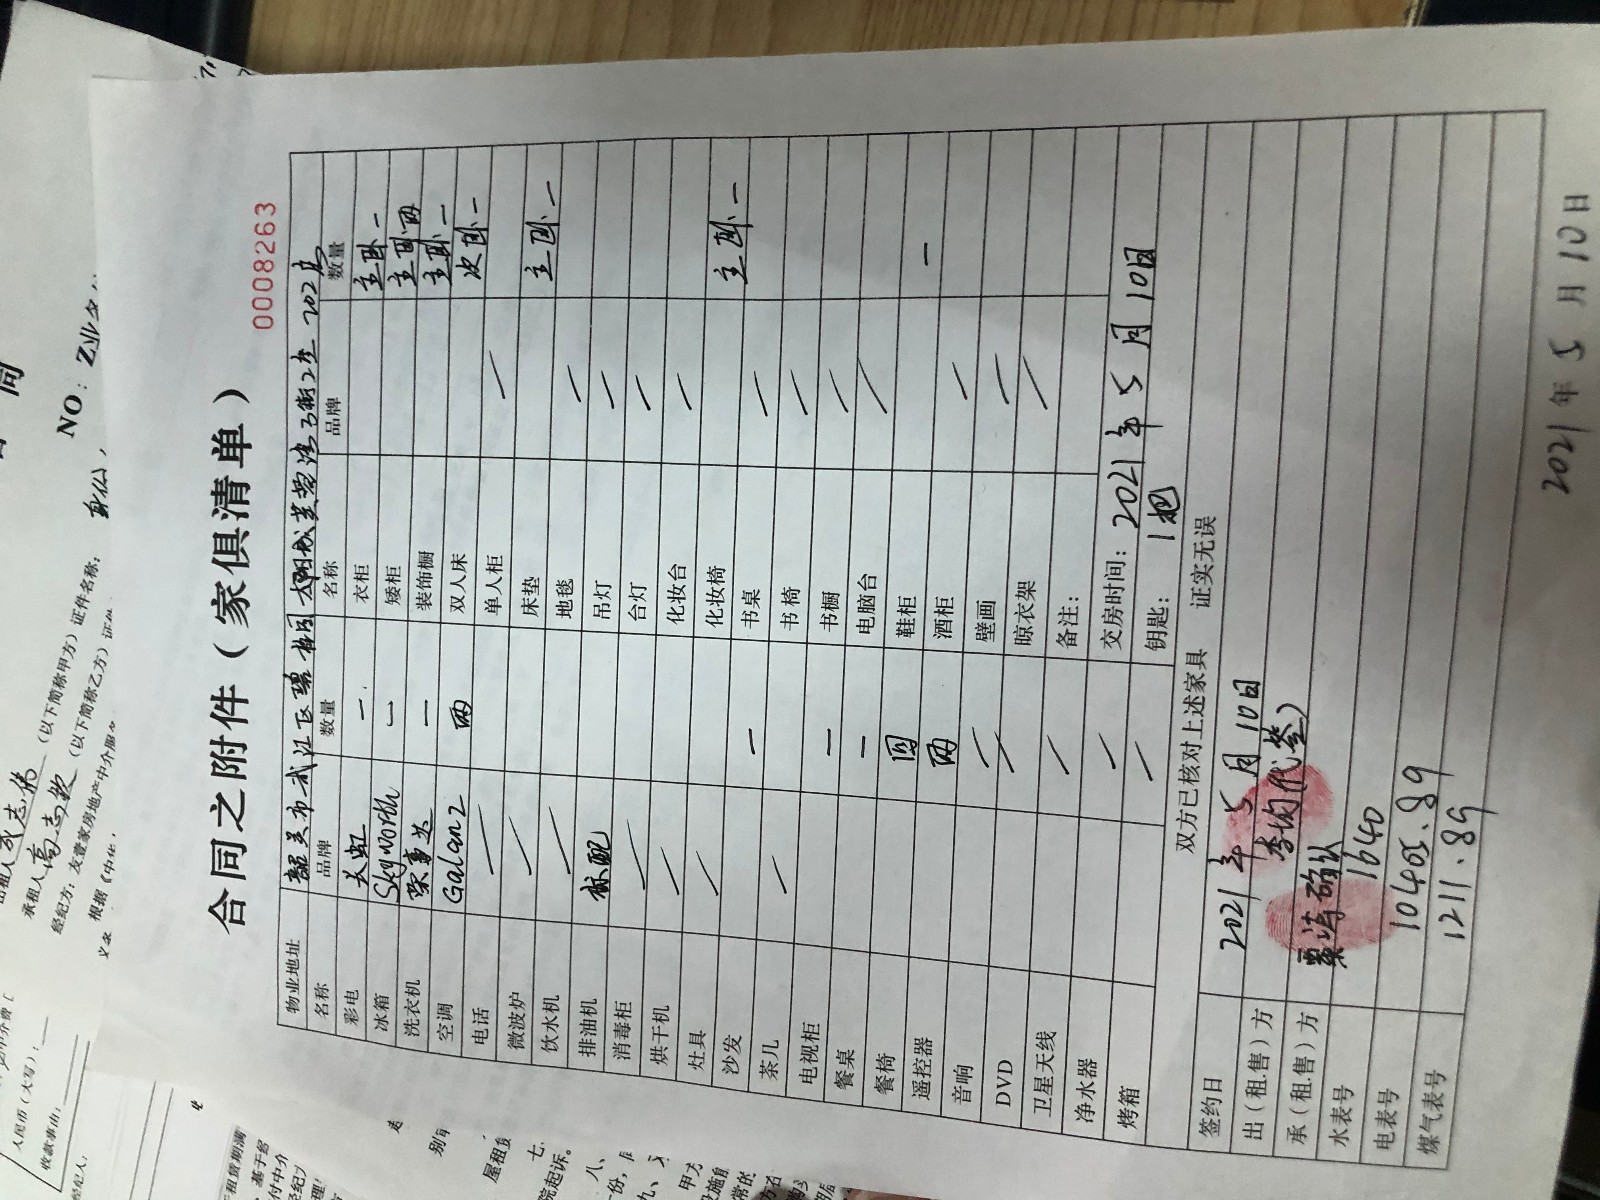 0008263
合同之附件（家俱清单）
物业地址 韶关市武江区 太阳城芙蓉 街2座 202房
名称 品牌 数量 名称 品牌 数量
彩电 长虹 一 衣柜 主卧一
冰箱 Skyworth 一 矮柜 主卧两
洗衣机 荣事达 一 装饰橱 主卧一
空调 Galanz 两 双人床 次卧一
电话 / 单人柜 /
微波炉 / 床垫 主卧一
饮水机 / 地毯 /
排油机 标配 吊灯 /
消毒柜 / 台灯 /
烘干机 / 化妆台 /
灶具 / 化妆椅 主卧一
沙发 一 书桌 /
茶几 / 书椅 /
电视柜 一 书橱 /
餐桌 一 电脑台 /
餐椅 四 鞋柜 一
遥控器 两 酒柜 /
音响 / 壁画 /
DVD / 晾衣架 /
卫星天线 / 备注：
净水器 / 交房时间：2021年5月10日
烤箱 / 钥匙：1把
双方已核对上述家具 证实无误
签约日 2021年5月10日
出（租.售）方 李均(代签)
承（租.售）方 粟涛确认
水表号 1640
电表号 10405.89
煤气表号 1211.89
2021年5月10日
同
NO：Z业务
出租人 成志弟 （以下简称甲方）证件名称：身份
承租人 高志敏 （以下简称乙方）证
经纪方：友谊家房地产中介服
根据《中华
人民币（大写）：
收款事由：
经纪人：
租赁期满
基于
付中介
经纪
理
别
屋租
七、
院起诉。
八、
份，
九、
甲方
设施
常的